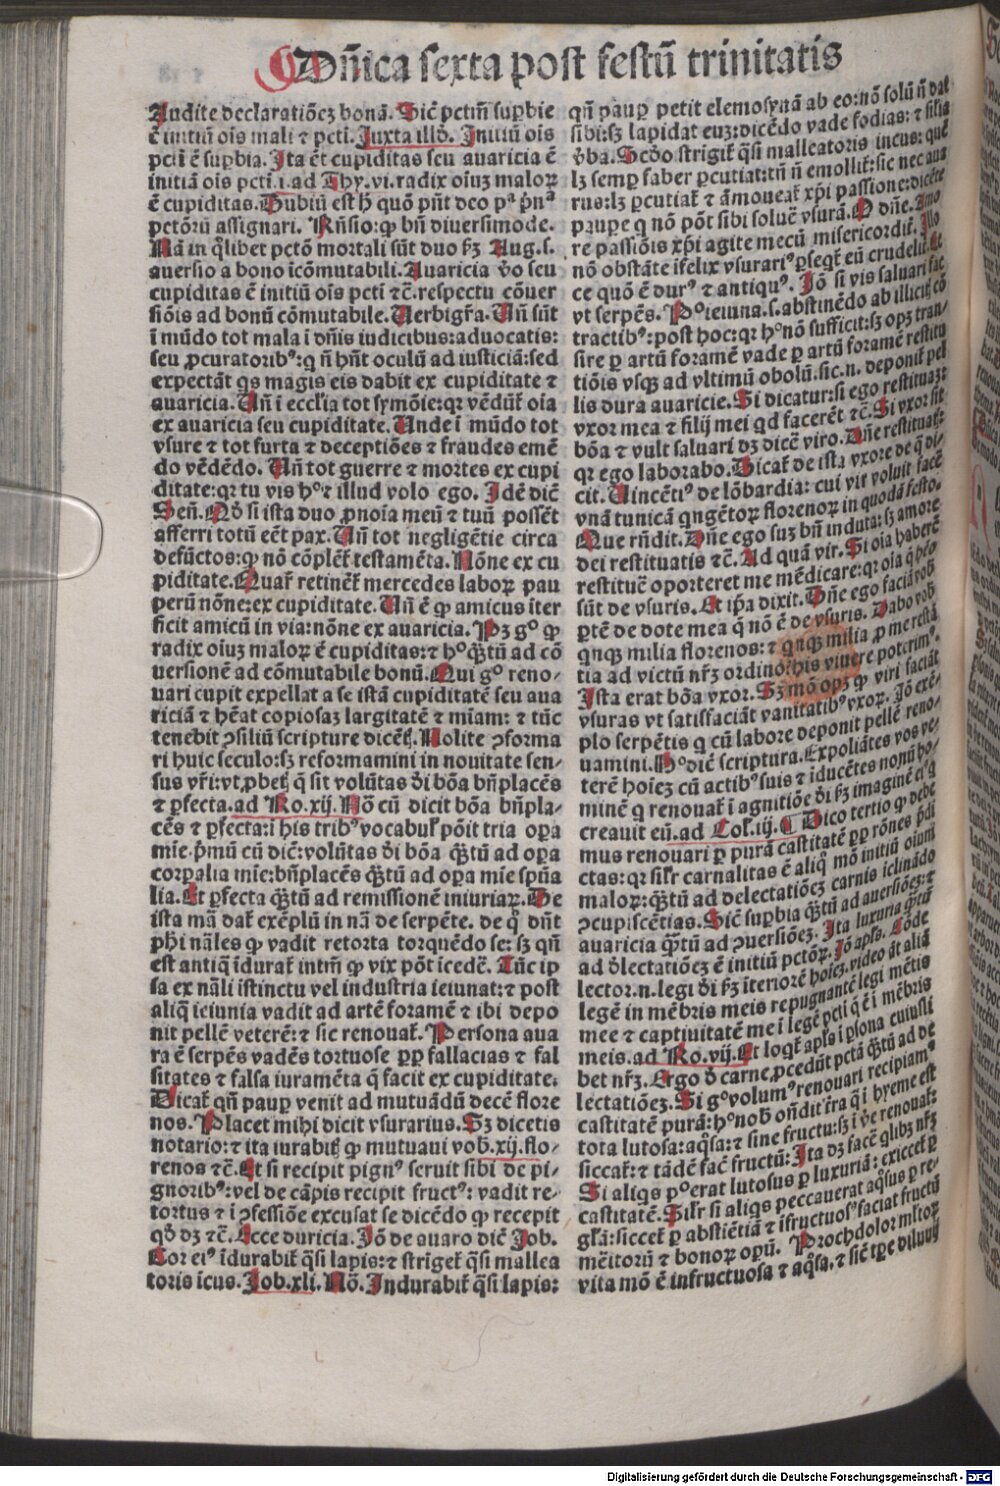 Dñica sexta post festũ trinitatis
Audite declaratiõeȝ bonã. Sic̃ pctm̃ sup̱bie
ẽ initiũ ois mali ⁊ pcti. Juxta illð. Initiũ ois
pcti ẽ sup̱bia. Ita ẽt cupiditas seu auaricia ẽ
initiũ ois pcti. i. ad Thy. vi. radix oiuȝ maloꝝ
ẽ cupiditas. Dubiũ est h̃ quõ pñt dco pᵃ p̃nᵃ
pctõrũ assignari. Rñsio: ꝙ bñ diuersimode.
Nã in q̃libet pctõ mortali sũt duo ẞȝ Aug. s.
auersio a bono ĩcõmutabili. Auaricia ṽo seu
cupiditas ẽ initiũ ois pcti ⁊c̃. respectu cõuer
siõis ad bonũ cõmutabile. Uerbigr̃a. Uñ sũt
ĩ mũdo tot mala ĩ dñis iudicibus: aduocatis:
seu ꝓcuratoribꝰ: q ñ hñt oculũ ad iusticiã: sed
expectãt qs magis eis dabit ex cupiditate ⁊
auaricia. Uñ i eccl̃ia tot symõie: qꝛ vẽdũt̃ oĩa
ex auaricia seu cupiditate. Unde i mũdo tot
vsure ⁊ tot furta ⁊ deceptiões ⁊ fraudes emẽ
do vẽdẽdo. Uñ tot guerre ⁊ mortes ex cupi
ditate: qꝛ tu vis hᵒ ⁊ illud volo ego. Idẽ dic̃
Señ. Qð si ista duo ꝓnoĩa meũ ⁊ tuũ possẽt
afferri totũ eẽt pax. Uñ tot negligẽtie circa
defũctos: ꝙ nõ cõplẽt̃ testamẽta. Nõne ex cu
piditate. Quar̃ retinẽt̃ mercedes laboꝝ pau
perũ nõne: ex cupiditate. Uñ ẽ ꝙ amicus iter
ficit amicũ in via: nõne ex auaricia. Pȝ gᵒ ꝙ
radix oiuȝ maloꝝ ẽ cupiditas: ⁊ hᵒ q̃ʒtũ ad cõ
uersionẽ ad cõmutabile bonũ. Qui gᵒ reno-
uari cupit expellat a se istã cupiditatẽ seu aua
riciã ⁊ hẽat copiosaȝ largitatẽ ⁊ miam: ⁊ tũc
tenebit ꝯsiliũ scripture dicẽt̃. Nolite ꝯforma
ri huic seculo: sȝ reformamini in nouitate sen-
sus vr̃i: vt ꝓbet̃ q̃ sit volũtas ði bõa bñplacẽs
⁊ p̱fecta. ad Ro. xij. Nõ cũ dicit bõa bñpla-
cẽs ⁊ p̱fecta: i his tribꝰ vocabul̃ põit tria oꝑa
mie. p̃mũ cũ dic̃: volũtas ði bõa q̃ʒtũ ad oꝑa
corpalia mie: bñplacẽs q̃ʒtũ ad oꝑa mie spũa
lia. Et p̱fecta q̃ʒtũ ad remissionẽ iniuriaꝝ. De
ista mã dat̃ exẽplũ in nã de serpẽte. de qͦ dñt
phi nãles ꝙ vadit retorta torquẽdo se: sȝ qñ
est antiqͦ ĩdurat̃ intm̃ ꝙ vix põt icedẽ. Tũc ip
sa ex nãli istinctu vel industria ieiunat: ⁊ post
aliq̃ ieiunia vadit ad artẽ foramẽ ⁊ ibi depo
nit pellẽ veterẽ: ⁊ sic renouat̃. Persona aua
ra ẽ serpẽs vadẽs tortuose ꝑꝑ fallacias ⁊ fal
sitates ⁊ falsa iuramẽta q̃ facit ex cupiditate.
Dicat̃ qñ pauꝑ venit ad mutuãdũ decẽ flore
nos. Placet mihi dicit vsurarius. Sȝ dicetis
notario: ⁊ ita iurabit̃ ꝙ mutuaui vob̃. xij. flo-
renos ⁊c̃. Et si recipit pignꝰ seruit sibi de pi-
gnoribꝰ: vel de cãpis recipit fructꝰ: vadit re-
tortus ⁊ i ꝯfessiõe excusat se dicẽdo ꝙ recepit
qð dȝ ⁊c̃. Ecce duricia. Jõ de auaro dic̃ Job.
Cor eiꝰ ĩdurabit̃ q̃si lapis: ⁊ striget̃ q̃si mallea
toris icus. Job. xli. Nõ. Indurabit̃ q̃si lapis:
qñ pauꝑ petit elemosynã ab eo: nõ solũ ñ dat
sibi: sȝ lapidat euȝ: dicẽdo vade fodias: ⁊ silia
ṽba. Secðo strigit̃ q̃si malleatoris incus: quẽ
lȝ semꝑ faber ꝑcutiat: tñ ñ emollit̃: sic nec aua
rus: lȝ ꝑcutiat̃ ⁊ ãmoueat̃ xp̃i passione: dicẽte
pauꝑe q nõ põt sibi soluẽ vsurã. O dñe. Amo
re passiõis xp̃i agite mecũ misericordit̃. Illo
nõ obstãte ifelix vsurariꝰ ꝑseqt̃ eũ crudelit̃. Et
ce quõ ẽ durꝰ ⁊ antiquꝰ. Jõ si vis saluari fac
vt serpẽs. Pᵒ ieiuna. s. abstinẽdo ab illicit̃ cõ
tractibꝰ: post hoc: qꝛ hᵒ nõ sufficit: sȝ opȝ tran-
sire ꝑ artũ foramẽ vade ꝑ artũ foramẽ restitu
tiõis vsqȝ ad vltimũ obolũ. sic. n. deponit̃ pel
lis dura auaricie. Si dicatur: si ego restituaȝ:
vxor mea ⁊ filij mei qd facerẽt ⁊c̃. Si vxor sit
bõa ⁊ vult saluari dȝ dicẽ viro. Dñe restituat̃:
qꝛ ego laborabo. Dicat̃ de ista vxore de q̃ di-
cit. Uincẽtiꝰ de lõbardia: cui vir voluit facẽ
vnã tunicã qngẽtoꝝ florenoꝝ in quodã festo.
Que rñdit. Dñe ego suȝ bñ induta: sȝ amore
dei restituatis ⁊c̃. Ad quã vir. Si oĩa haberẽ
restituẽ oporteret me mẽdicare: qꝛ oĩa q̃ hẽo
sũt de vsuris. Et ip̃a dixit. Dñe ego faciã vob̃
ꝑtẽ de dote mea q̃ nõ ẽ de vsuris. Dabo vob̃
qnqȝ milia florenos: ⁊ qnqȝ milia ꝓ me restã
tia ad victũ nr̃ȝ ordino: his viuere poterimꝰ.
Ista erat bõa vxor. Sȝ mõ opȝ ꝙ viri faciãt
vsuras vt satisfaciãt vanitatibꝰ vxoꝝ. Jõ exẽ-
plo serpẽtis q cũ labore deponit pellẽ reno-
uamini. Hᵒ dic̃ scriptura. Expoliãtes vos ve-
terẽ hoieȝ cũ actibꝰ suis ⁊ iducẽtes nouũ ho-
minẽ q renouat̃ i agnitiõe ði ẞȝ imaginẽ eiꝰ q
creauit eũ. ad Col̃. iij. ¶ Dico tertio ꝙ debe
mus renouari ꝑ purã castitatẽ ꝑꝑ rõnes p̃di
ctas: qꝛ sil̃r carnalitas ẽ aliqͦ mõ initiũ oiuʒ
maloꝝ: q̃ʒtũ ad delectatiõeȝ carnis iclinãdo
ꝯcupiscẽtias. Sic̃ suꝑbia q̃ʒtũ ad auersiõeȝ: ⁊
auaricia q̃ʒtũ ad ꝯuersiõeȝ. Ita luxuria q̃ʒtũ
ad ðlectatiõeȝ ẽ initiũ pctõꝝ. Jõ apl̃s. Cõde
lector. n. legi ði ẞȝ iteriorẽ hoieȝ. video ãt aliã
legẽ in mẽbris meis repugnantẽ legi mẽtis
mee ⁊ captiuitatẽ me i legẽ pcti q̃ ẽ i mẽbris
meis. ad Ro. vij. Et loqt̃ apl̃s i ꝑsona cuiusli
bet nr̃ȝ. Ergo ð carne ꝓcedũt pctã q̃ʒtũ ad de
lectatiõeȝ. Si gᵒ volumꝰ renouari recipiamꝰ
castitatẽ purã: hᵒ nob̃ oñdit t̃ra q̃ i hyeme est
tota lutosa: aq̃sa: ⁊ sine fructu: sȝ i v̇e renouat̃:
siccat̃: ⁊ tãdẽ fac̃ fructũ: Ita dȝ facẽ qlibȝ nr̃ȝ
Si aliqs pᵒ erat lutosus ꝑ luxuriã: exiccet̃ ꝑ
castitatẽ. Sil̃r si aliqs peccauerat aq̃sus ꝑ re-
grã: siccet̃ ꝑ abstiẽtiã ⁊ ifructuosꝰ faciat fructũ
mẽitorũ ⁊ bonoꝝ opũ. Prochdolor mltoꝝ
vita mõ ẽ infructuosa ⁊ aq̃sa. ⁊ sic̃ tp̱e diluuij
Digitalisierung gefördert durch die Deutsche Forschungsgemeinschaft - DFG